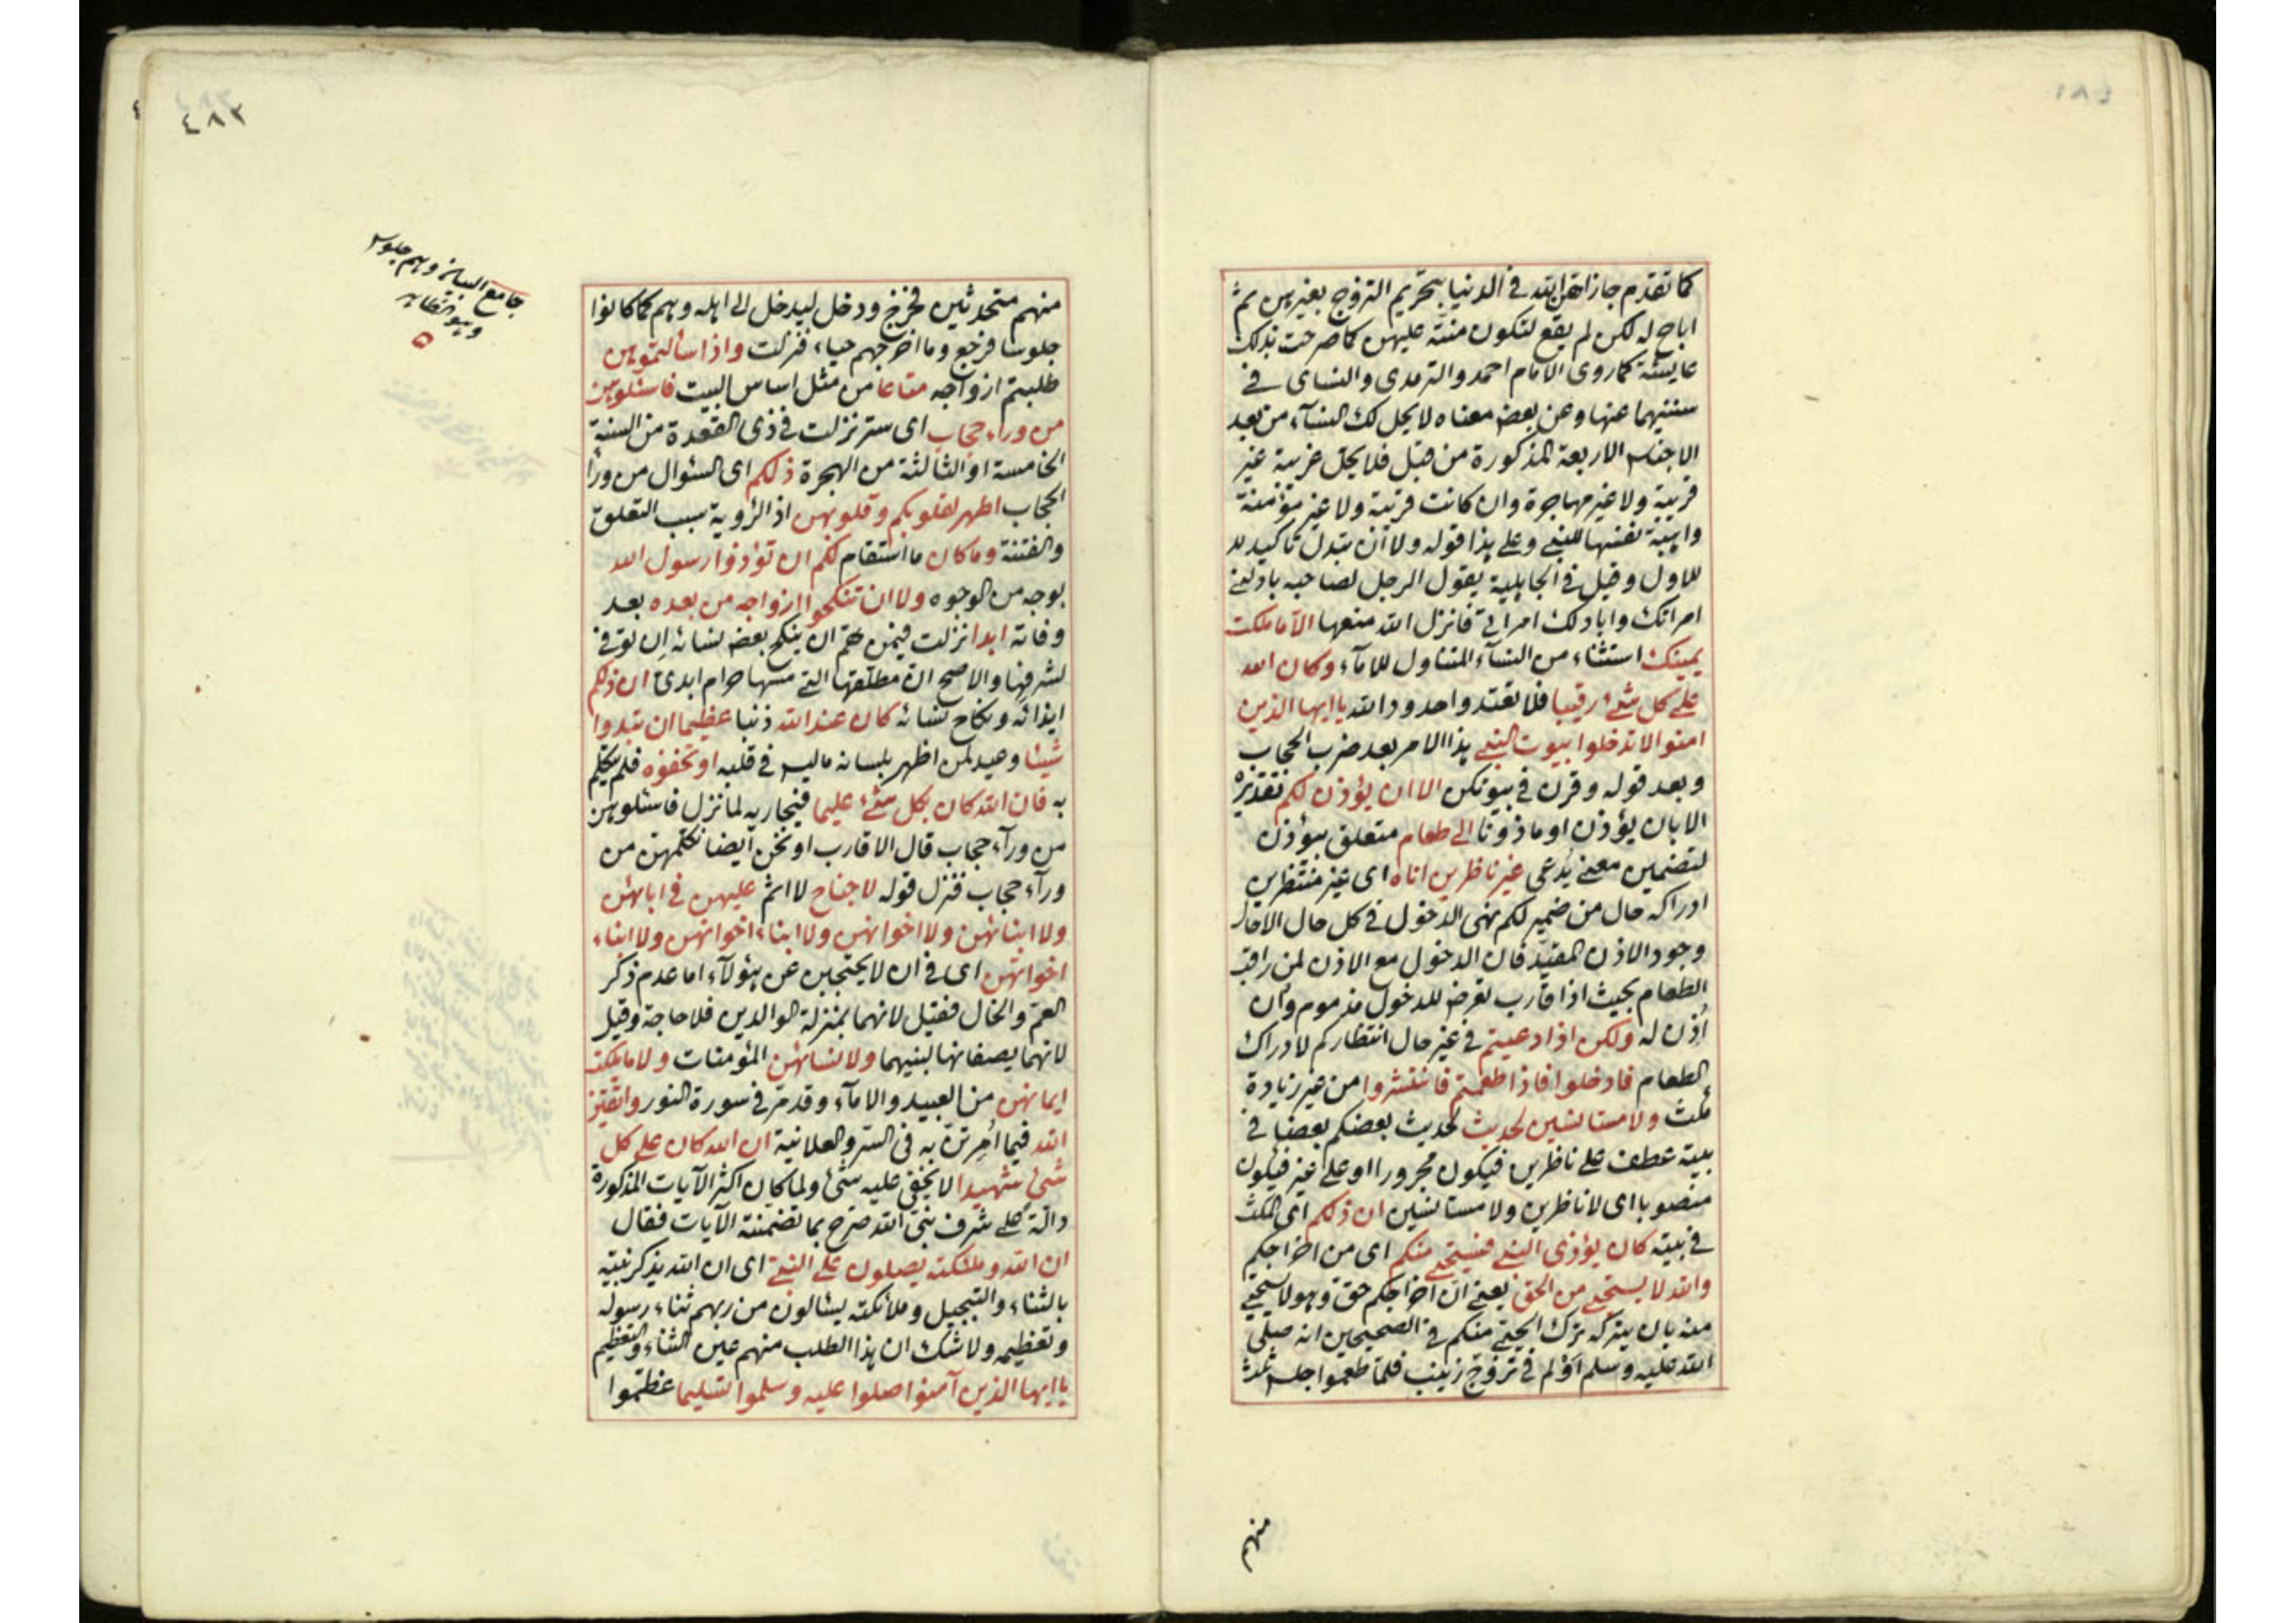 كما تقدم جازاهن الله في الدنيا بتحريم التزوج بغيرهن ثم
اباح له لكن لم يقع لتكون منته عليهن كما صرحت بذلك
عايشة كما روى الامام احمد والترمدى والنساى في
سننيهما عنها وعن بعض معناه لا يحل لك النسآء من بعد
الاجناس الاربعة المذكورة من قبل فلا يحل غريبة غير
قريبة ولا غير مهاجرة وان كانت قريبة ولا غير مؤمنة
واهبة نفسها للنبي وعلى هذا قوله ولا ان تبدل تاكيد
للاول وقيل في الجاهلية يقول الرجل لصاحبه بادلني
امراتك وابادلك امراتي فانزل الله منعها الا ما ملكت
يمينك استثناء من النسآء المتناول للامآء وكان الله
على كل شئ رقيبا فلا تعتدوا حدود الله يا ايها الذين
امنوا لا تدخلوا بيوت النبي هذا الامر بعد ضرب الحجاب
وبعد قوله وقرن في بيوتكن الا ان يؤذن لكم تقديره
الا بان يؤذن او ماذونا الى طعام متعلق بيؤذن
لتضمين معنى يدعى غير ناظرين اناه اى غير منتظرين
ادراكه حال من ضمير لكم نهى الدخول في كل حال الا حال
وجود الاذن المقيد فان الدخول مع الاذن لمن راقب
الطعام بحيث اذا قارب تعرض للدخول مذموم وان
اذن له ولكن اذا دعيتم في غير حال انتظاركم لادراك
الطعام فادخلوا فاذا طعمتم فانتشروا من غير زيادة
مكث ولا مستانسين لحديث لحديث بعضكم بعضا في
بيته عطف على ناظرين فيكون مجرورا او على غير فيكون
منصوبا اى لا ناظرين ولا مستانسين ان ذلكم اى المكث
في بيته كان يؤذى النبي فيستحيي منكم اى من اخراجكم
والله لا يستحيي من الحق يعني ان اخراجكم حق وهو لا يستحيي
منه بان يتركه ترك الحيي منكم في الصحيحين انه صلى
الله عليه وسلم اولم في تزوج زينب فلما طعموا جلس ثلث
منهم
٤٨٢
منهم متحدثين فخرج ودخل ليدخل الى اهله وهم كما كانوا
جلوسا فرجع وما اخرجهم حياء، فنزلت واذا سألتموهن
طلبتم ازواجه متاعا من مثل اساس البيت فاسئلوهن
من وراء حجاب اى ستر نزلت في ذى القعدة من السنة
الخامسة او الثالثة من الهجرة ذلكم اى السئوال من ورآء
الحجاب اطهر لقلوبكم وقلوبهن اذ الرؤية سبب التعلق
والفتنة وما كان ما استقام لكم ان تؤذوا رسول الله
بوجه من الوجوه ولا ان تنكحوا ازواجه من بعده بعد
وفاته ابدا نزلت فيمن هم ان ينكح بعض نسائه ان توفى
لشرفها والاصح ان مطلقتها التي مسها حرام ابدى ان ذلكم
ايذائه ونكاح نسائه كان عند الله ذنبا عظيما ان تبدوا
شيئا وعيد لمن اظهر بلسانه ما ليس في قلبه او تخفوه فلم يتكلم
به فان الله كان بكل شئ عليما فيجازيه لما نزل فاسئلوهن
من ورآء حجاب قال الاقارب او نحن ايضا نكلمهن من
ورآء حجاب فنزل قوله لا جناح لا اثم عليهن في ابائهن
ولا ابنائهن ولا اخوانهن ولا ابناء اخوانهن ولا ابناء
اخواتهن اى في ان لا يحتجبن عن هؤلآء اما عدم ذكر
العم والخال فقيل لانهما بمنزلة الوالدين فلا حاجة وقيل
لانهما يصفانها لبنيهما ولا نسائهن المؤمنات ولا ما ملكت
ايمانهن من العبيد والامآء وقد مر في سورة النور واتقين
الله فيما امرتن به في السر والعلانية ان الله كان على كل
شئ شهيدا لا يخفى عليه شئ ولما كان اكثر الآيات المذكورة
دالة على شرف نبي الله صرح بما تضمنته الآيات فقال
ان الله وملئكته يصلون على النبي اى ان الله يذكر نبيه
بالثناء والتبجيل وملائكته يسالون من ربهم ثناء رسوله
وتعظيمه ولا شك ان هذا الطلب منهم عين الثناء والتعظيم
يا ايها الذين آمنوا صلوا عليه وسلموا تسليما عظموا
جامع البيان وهم جلوس
وهو الظاهر